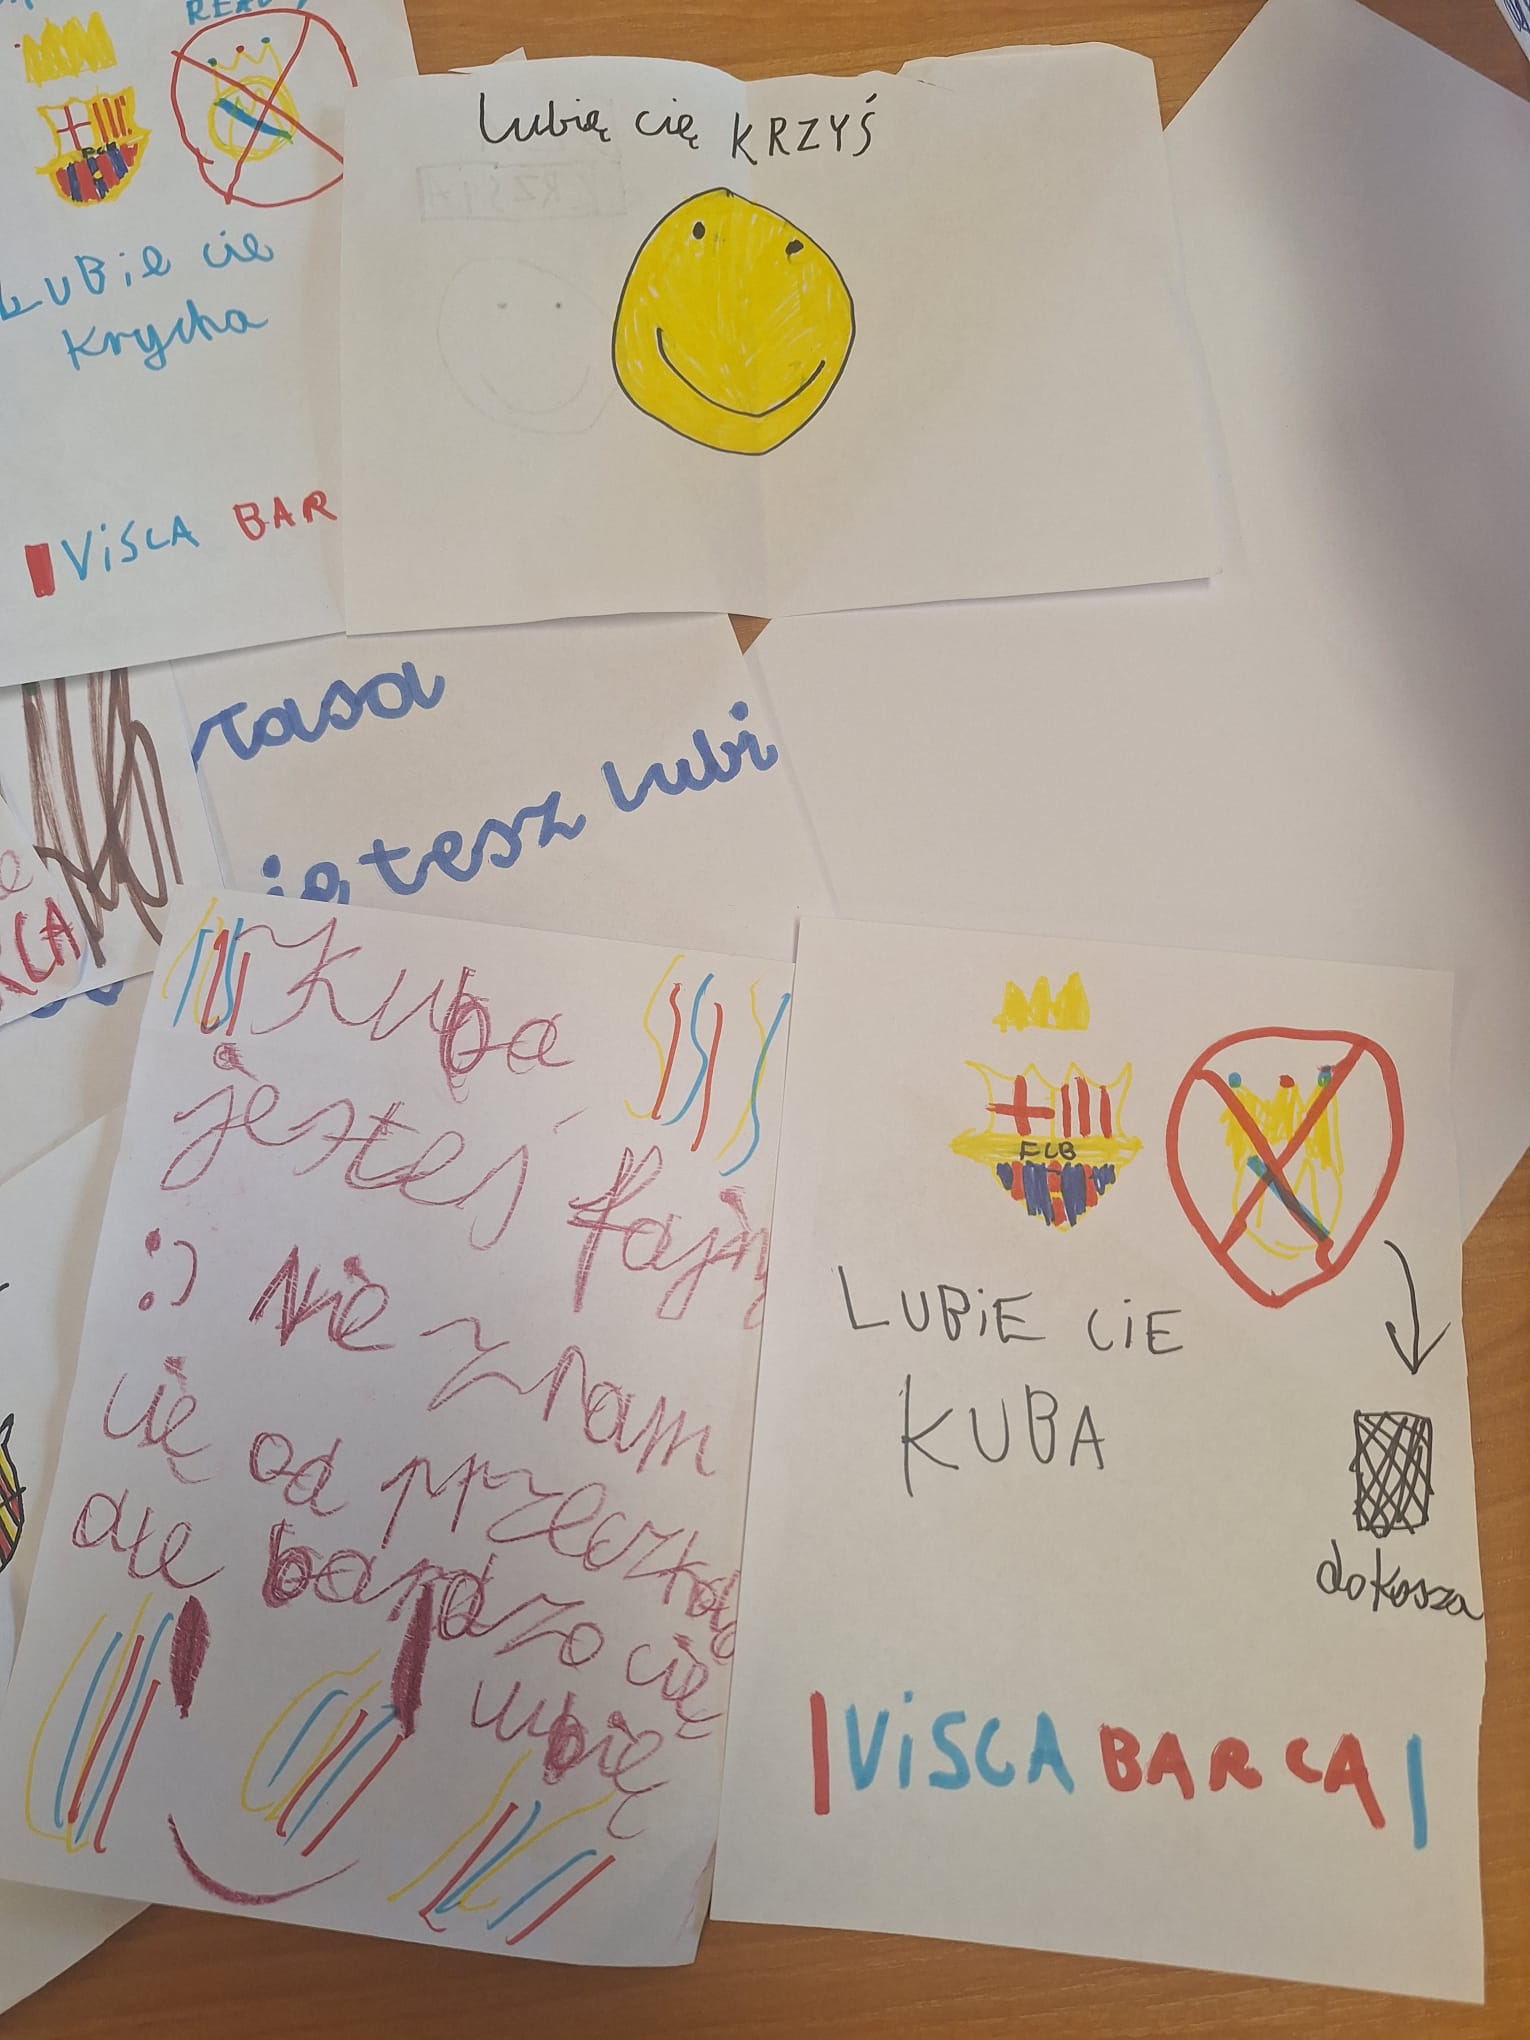 REAL
FCB
LUBiE ciE
Krycha
VISCA BAR
Lubię cię KRZYŚ
KRZSIA
rasa
ię tesz lubi
RCA
Kuba
jesteś fajny
:) Nie znam
cię od przeczkola
ale bardzo cię
lubię
FCB
LUBiE CiE
KUBA
do kosza
ViSCA BARCA